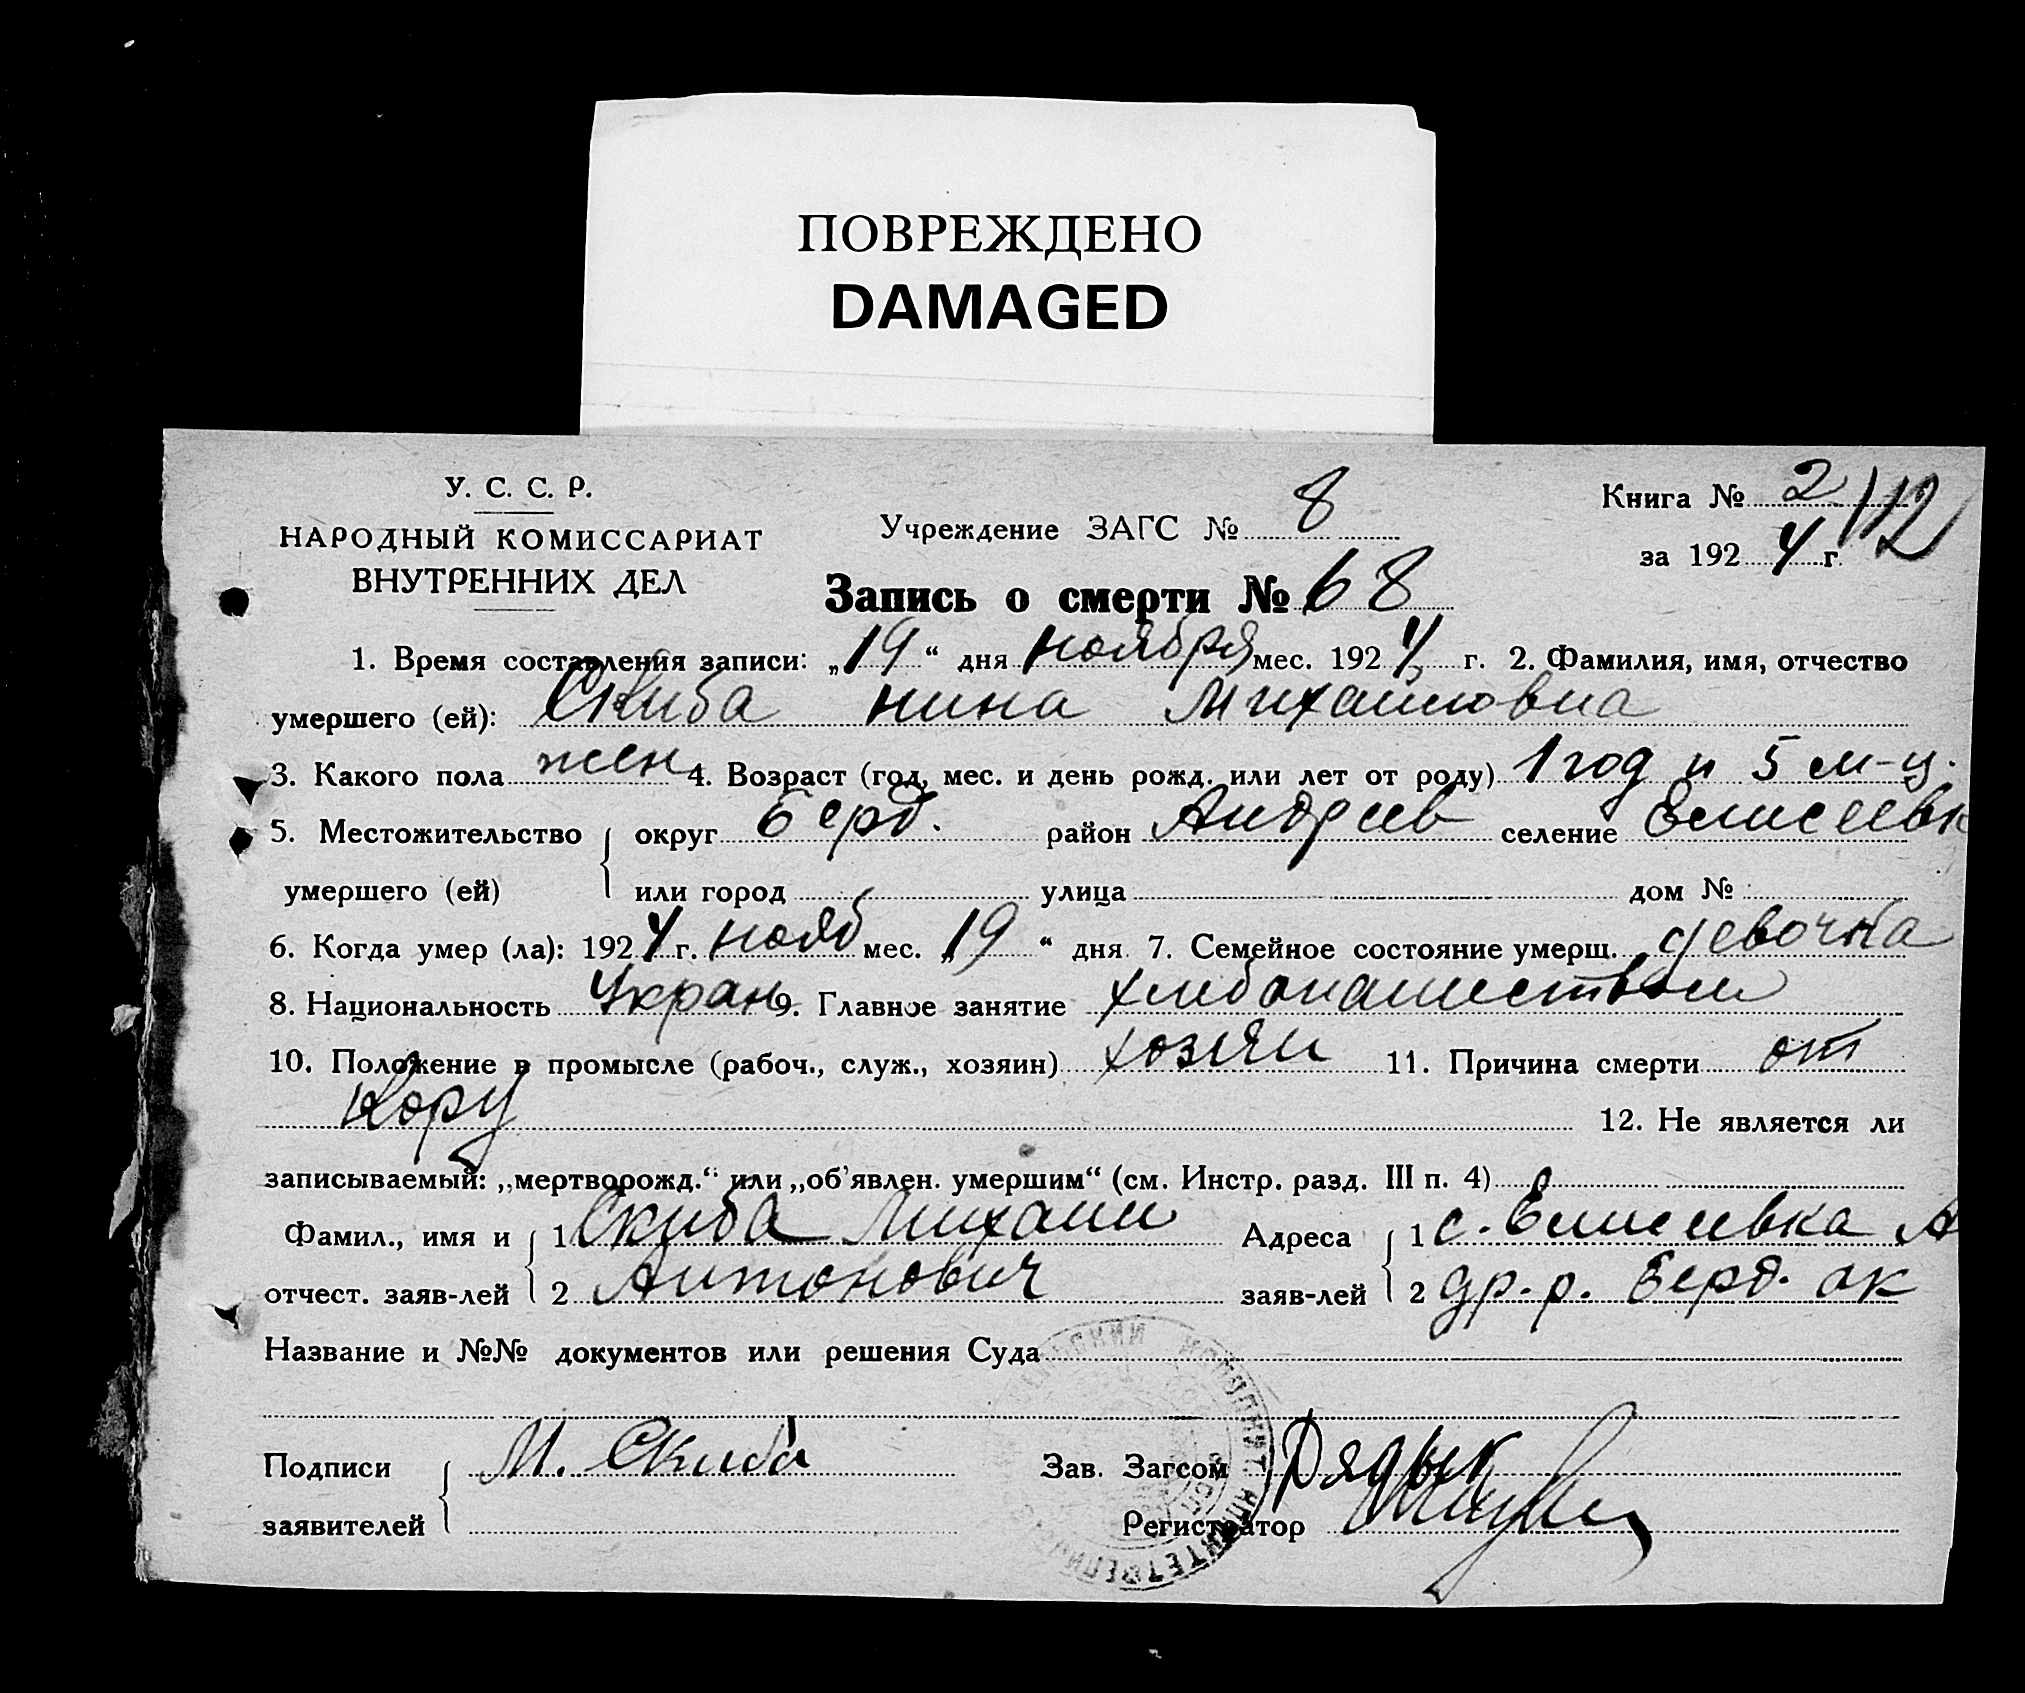 ПОВРЕЖДЕНО
DAMAGED
У. С. С. Р.
НАРОДНЫЙ КОМИССАРИАТ
ВНУТРЕННИХ ДЕЛ
Учреждение ЗАГС № 8
Книга № 2 112
за 1924 г.
Запись о смерти № 68
1. Время составления записи: „19“ дня ноября мес. 1924 г. 2. Фамилия, имя, отчество
умершего (ей): Скиба Нина Михайловна
3. Какого пола жен 4. Возраст (год, мес. и день рожд. или лет от роду) 1 год и 5 м-ц.
5. Местожительство умершего (ей) { округ Берд. район Андреев селение Елисеевк
или город улица дом №
6. Когда умер (ла): 1924 г. нояб мес. „19“ дня 7. Семейное состояние умерш. девочка
8. Национальность Укран 9. Главное занятие хлибопашеством
10. Положение в промысле (рабоч., служ., хозяин) хозяи 11. Причина смерти от
Кору 12. Не является ли
записываемый: „мертворожд.“ или „об'явлен. умершим“ (см. Инстр. разд. III п. 4)
Фамил., имя и отчест. заяв-лей { 1 Скиба Михаил
2 Антонович
Адреса заяв-лей { 1 с. Елисеевка А
2 др. р. Берд. ок
Название и №№ документов или решения Суда
Подписи заявителей { М. Скиба
Зав. Загсом
Регистратор